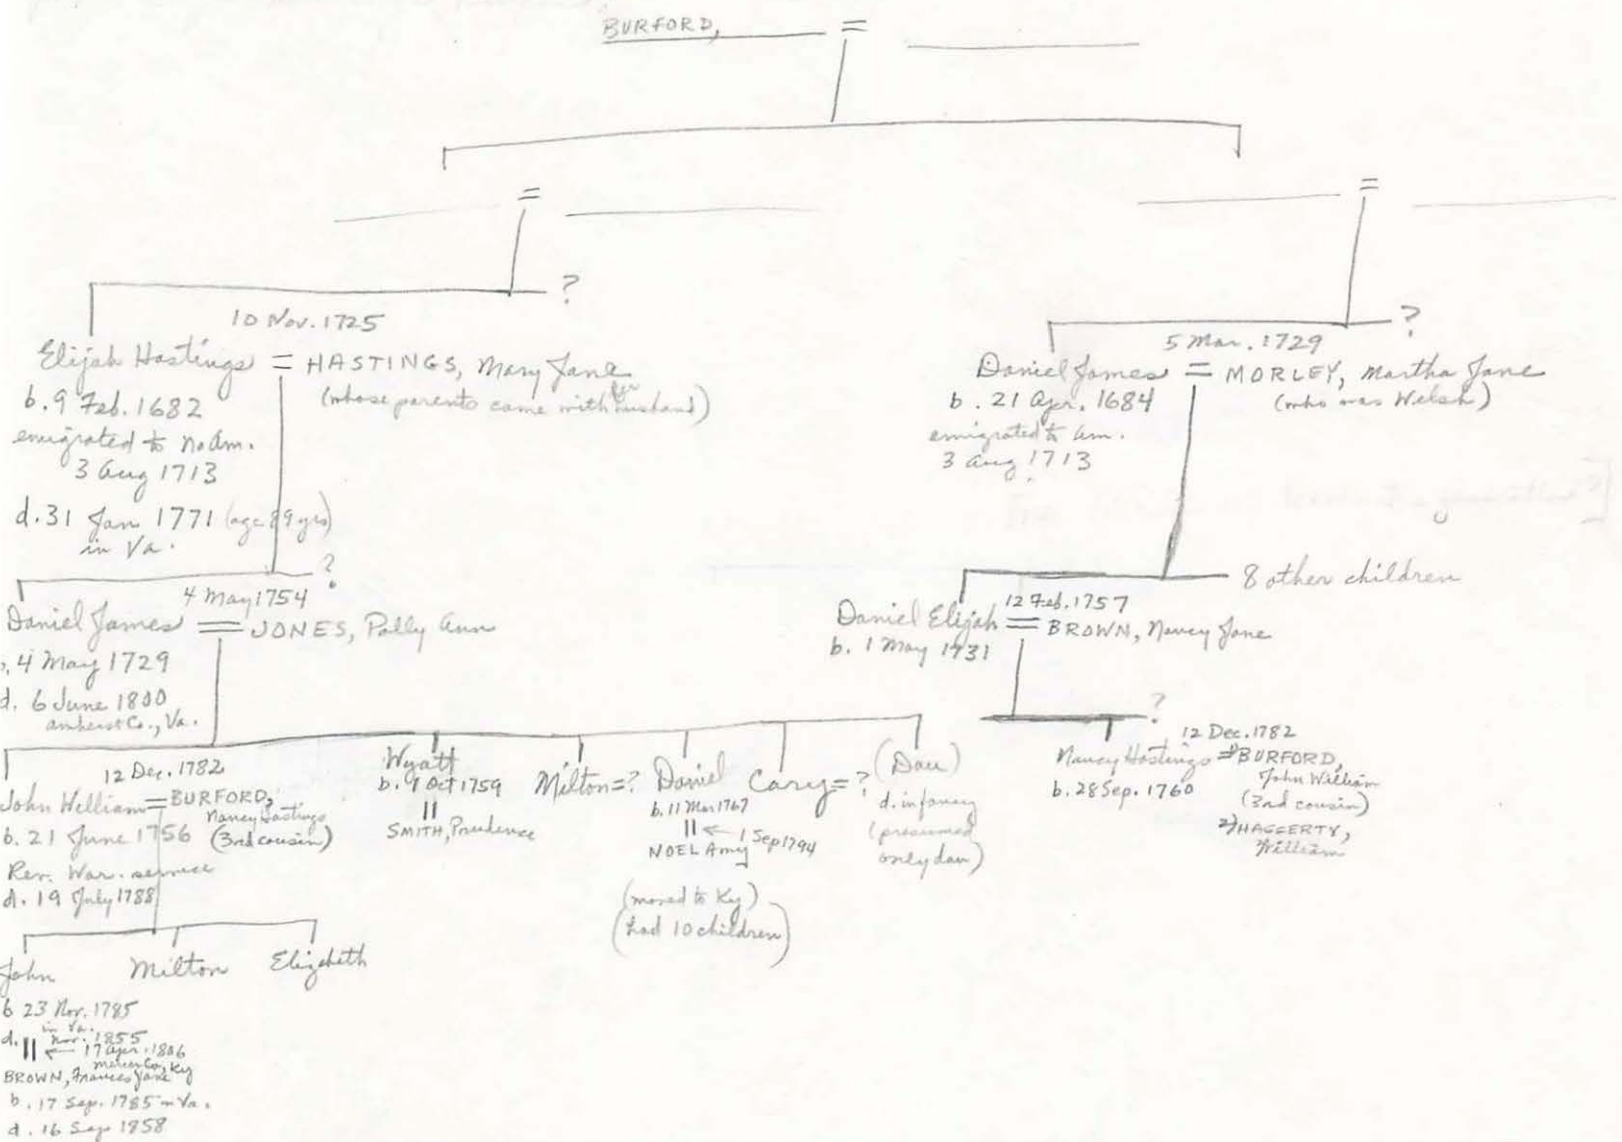 BURFORD, =
=
=
?
?
10 Nov. 1725
5 Mar. 1729
Elijah Hastings = HASTINGS, Mary Jane
(whose parents came with her husband)
b. 9 Feb. 1682
emigrated to no am.
3 Aug 1713
d. 31 Jan 1771 (age 89 yrs)
in Va.
Daniel James = MORLEY, Martha Jane
(who was Welsh)
b. 21 Apr. 1684
emigrated to am.
3 Aug 1713
?
8 other children
4 May 1754
Daniel James = JONES, Polly Ann
b. 4 May 1729
d. 6 June 1800
Amherst Co., Va.
12 Feb. 1757
Daniel Elijah = BROWN, Nancy Jane
b. 1 May 1731
?
12 Dec. 1782
John William = BURFORD,
Nancy Hastings
(3rd cousin)
b. 21 June 1756
Rev. War. service
d. 19 July 1788
Wyatt
b. 9 Oct 1759
||
SMITH, Prudence
Milton = ?
Daniel
b. 11 Mar 1767
|| ← 1 Sep 1794
NOEL Amy
(moved to Ky)
(had 10 children)
Cary = ?
(Dau)
d. in fancy
(presumed
only dau)
12 Dec. 1782
Nancy Hastings = 1) BURFORD,
John William
(3rd cousin)
b. 28 Sep. 1760
2) HAGGERTY,
William
John Milton Elizabeth
b 23 Nov. 1785
in Va.
d. Nov. 1855
|| ← 17 Apr. 1806
Mercer Co, Ky
BROWN, Frances Jane
b. 17 Sep. 1785 in Va.
d. 16 Sep 1858